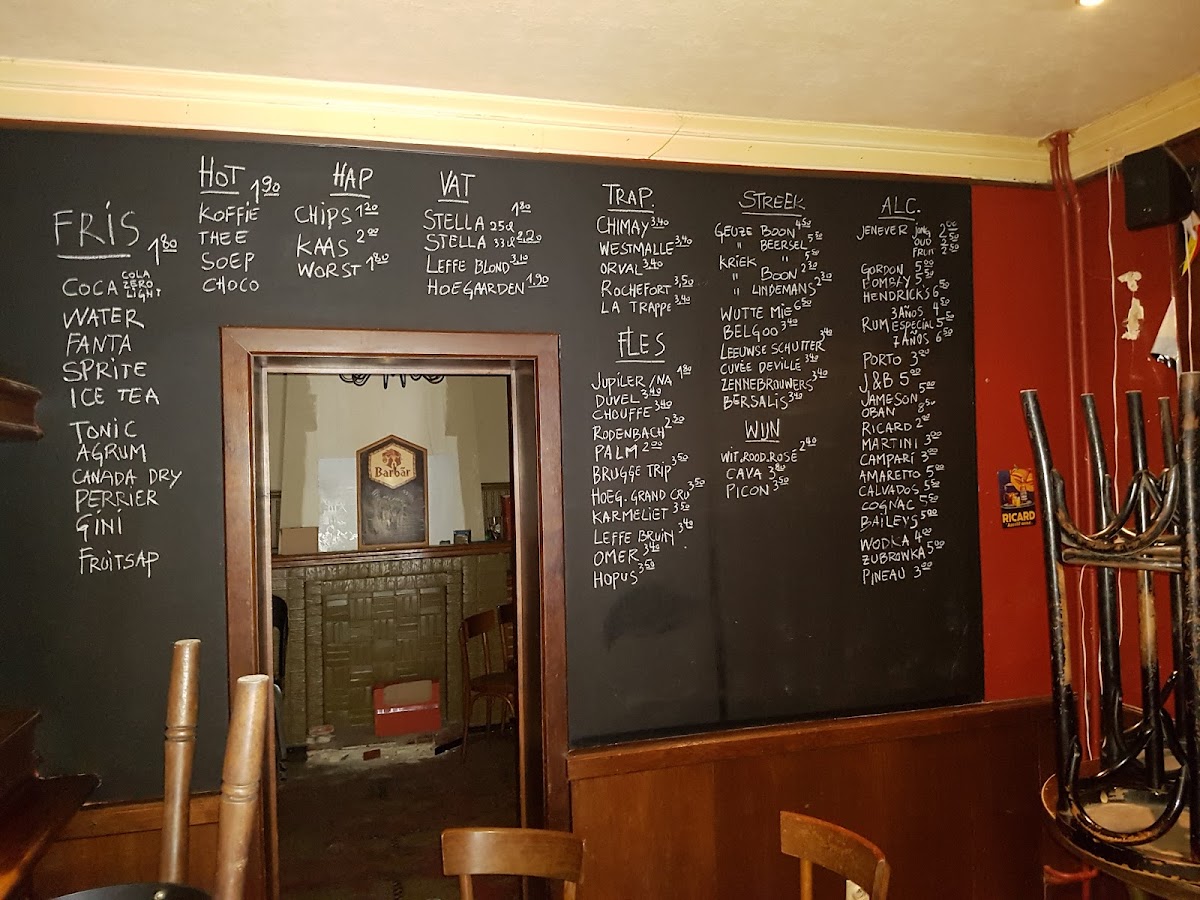 FRIS 180
COCA COLA ZERO LIGHT
WATER
FANTA
SPRITE
ICE TEA
TONIC
AGRUM
CANADA DRY
PERRIER
GINI
FRUITSAP
HOT 190
KOFFIE
THEE
SOEP
CHOCO
HAP
CHIPS 120
KAAS 200
WORST 180
VAT
STELLA 25cl 180
STELLA 33cl 2.20
LEFFE BLOND 3.10
HOEGAARDEN 1.90
TRAP.
CHIMAY 3.40
WESTMALLE 3.40
ORVAL 3.40
ROCHEFORT 3,50
LA TRAPPE 3.40
FLES
JUPILER/NA 180
DUVEL 340
CHOUFFE 340
RODENBACH 230
PALM 200
BRUGGE TRIP 350
HOEG. GRAND CRU 350
KARMELIET 350
LEFFE BRUIN 340
OMER 340
HOPUS 350
STREEK
GEUZE BOON 450
" BEERSEL 550
KRIEK " 550
" BOON 230
" LINDEMANS 230
WUTTE MIE 650
BELGOO 340
LEEUWSE SCHUTTER 340
CUVÉE DEVILLE 340
ZENNEBROUWERS 340
BERSALIS 340
WIJN
WIT, ROOD. ROSÉ 240
CAVA 380
PICON 350
ALC.
JENEVER JONG 200
OUD 250
FRUIT 250
GORDON 500
BOMBAY 550
HENDRICKS 650
3AÑOS 450
RUM ESPECIAL 550
7AÑOS 650
PORTO 300
J&B 500
JAMESON 500
OBAN 850
RICARD 200
MARTINI 300
CAMPARI 300
AMARETTO 500
CALVADOS 550
COGNAC 550
BAILEYS 500
WODKA 400
ZUBROWKA 500
PINEAU 300
Barbãr
RICARD